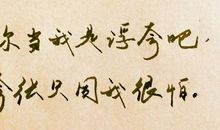 你当我是浮夸吧，
夸张只因我很怕。